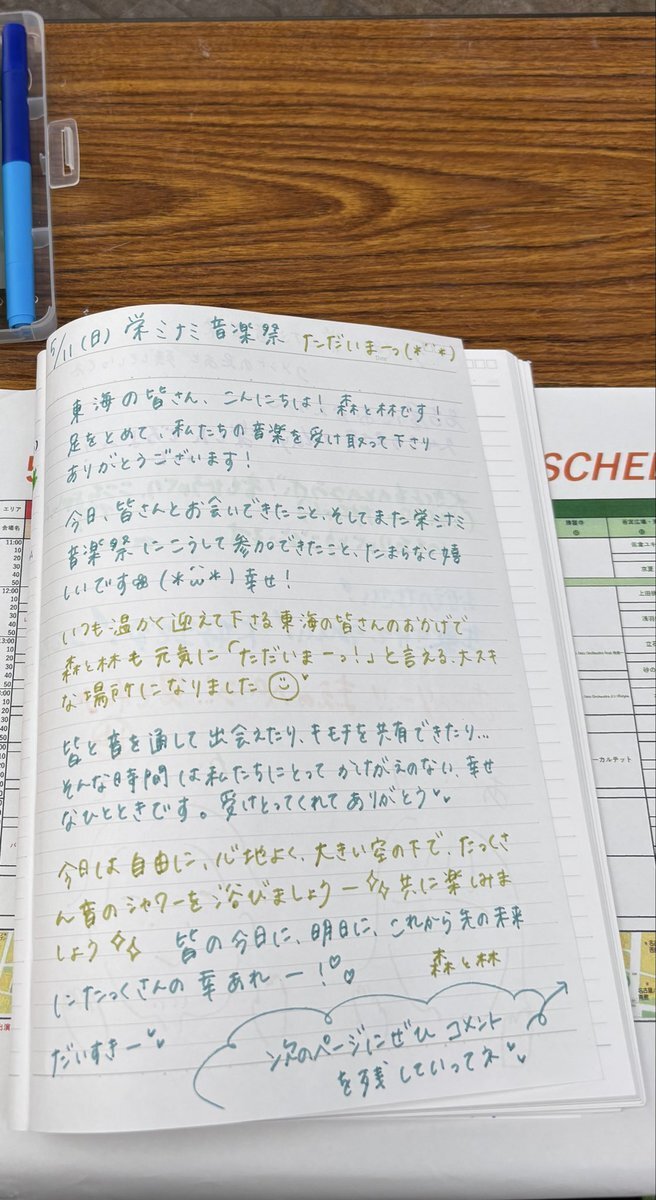 5/11(日) 栄ミナミ音楽祭 ただいまーっ(*¨*)
東海の皆さん、こんにちは! 森と林です!
足をとめて、私たちの音楽を受け取って下さり
ありがとうございます!
今日、皆さんとお会いできたこと、そしてまた栄ミナミ
音楽祭にこうして参加できたこと、たまらなく嬉
しいです(*¨*)幸せ!
いつも温かく迎えて下さる東海の皆さんのおかげで
森と林も元気に「ただいまーっ!」と言える、大スキ
な場所になりました
皆と音を通して出会えたり、キモチを共有できたり...
そんな時間は私たちにとってかけがえのない、幸せ
なひとときです。受けとってくれてありがとう
今日は自由に、心地よく、大きい空の下で、たっくさ
ん音のシャワーを浴びましょうー 共に楽しみま
しょう 皆の今日に、明日に、これから先の未来
にたっくさんの幸あれー!♡♡
森と林
だいすきー
次のページにぜひ コメント
を残していってネ
SCHED
エリア
会場名
11:00
12:00
カルテット